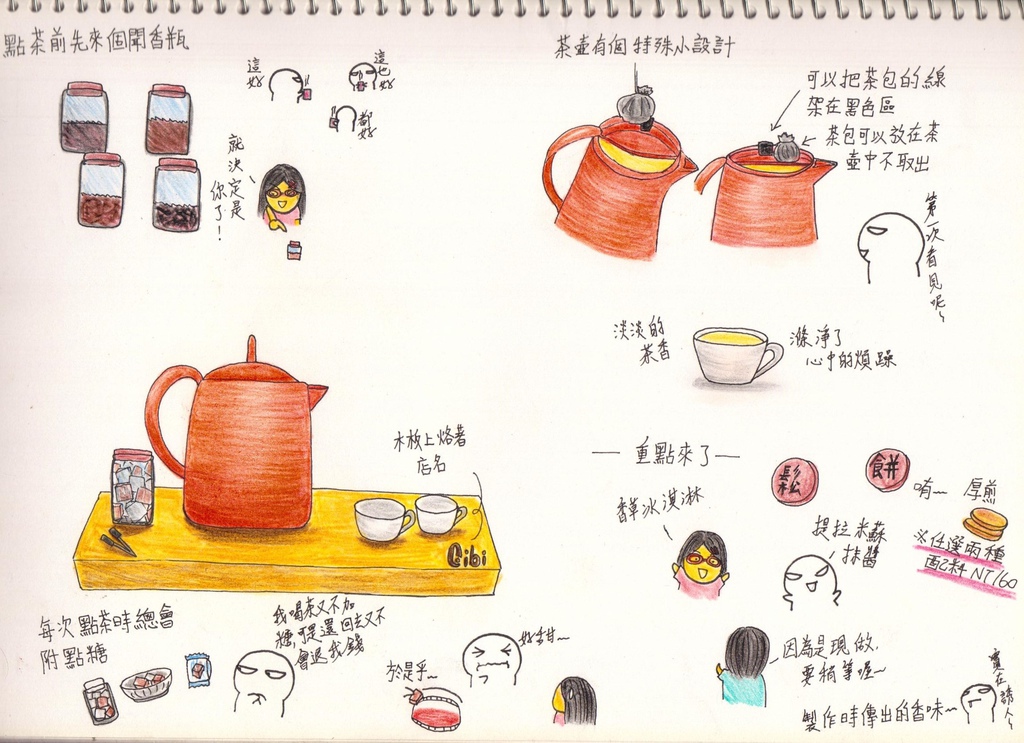 點茶前先來個聞香瓶
這
好
這也
好
都
好
就決定是
你了！
茶壺有個特殊小設計
可以把茶包的線
架在黑色區
茶包可以放在茶
壺中不取出
第一次看見呢~
淡淡的
茶香
滌淨了
心中的煩躁
木板上烙著
店名
Cibi
每次點茶時總會
附點糖
我喝茶又不加
糖,可是還回去又不
會退我錢
於是乎~
好甜~
— 重點來了 —
鬆
餅
香草冰淇淋
提拉米蘇
抹醬
唷~ 厚煎
※任選兩種
配料 NT160
因為是現做,
要稍等喔~
製作時傳出的香味~
實在誘人~